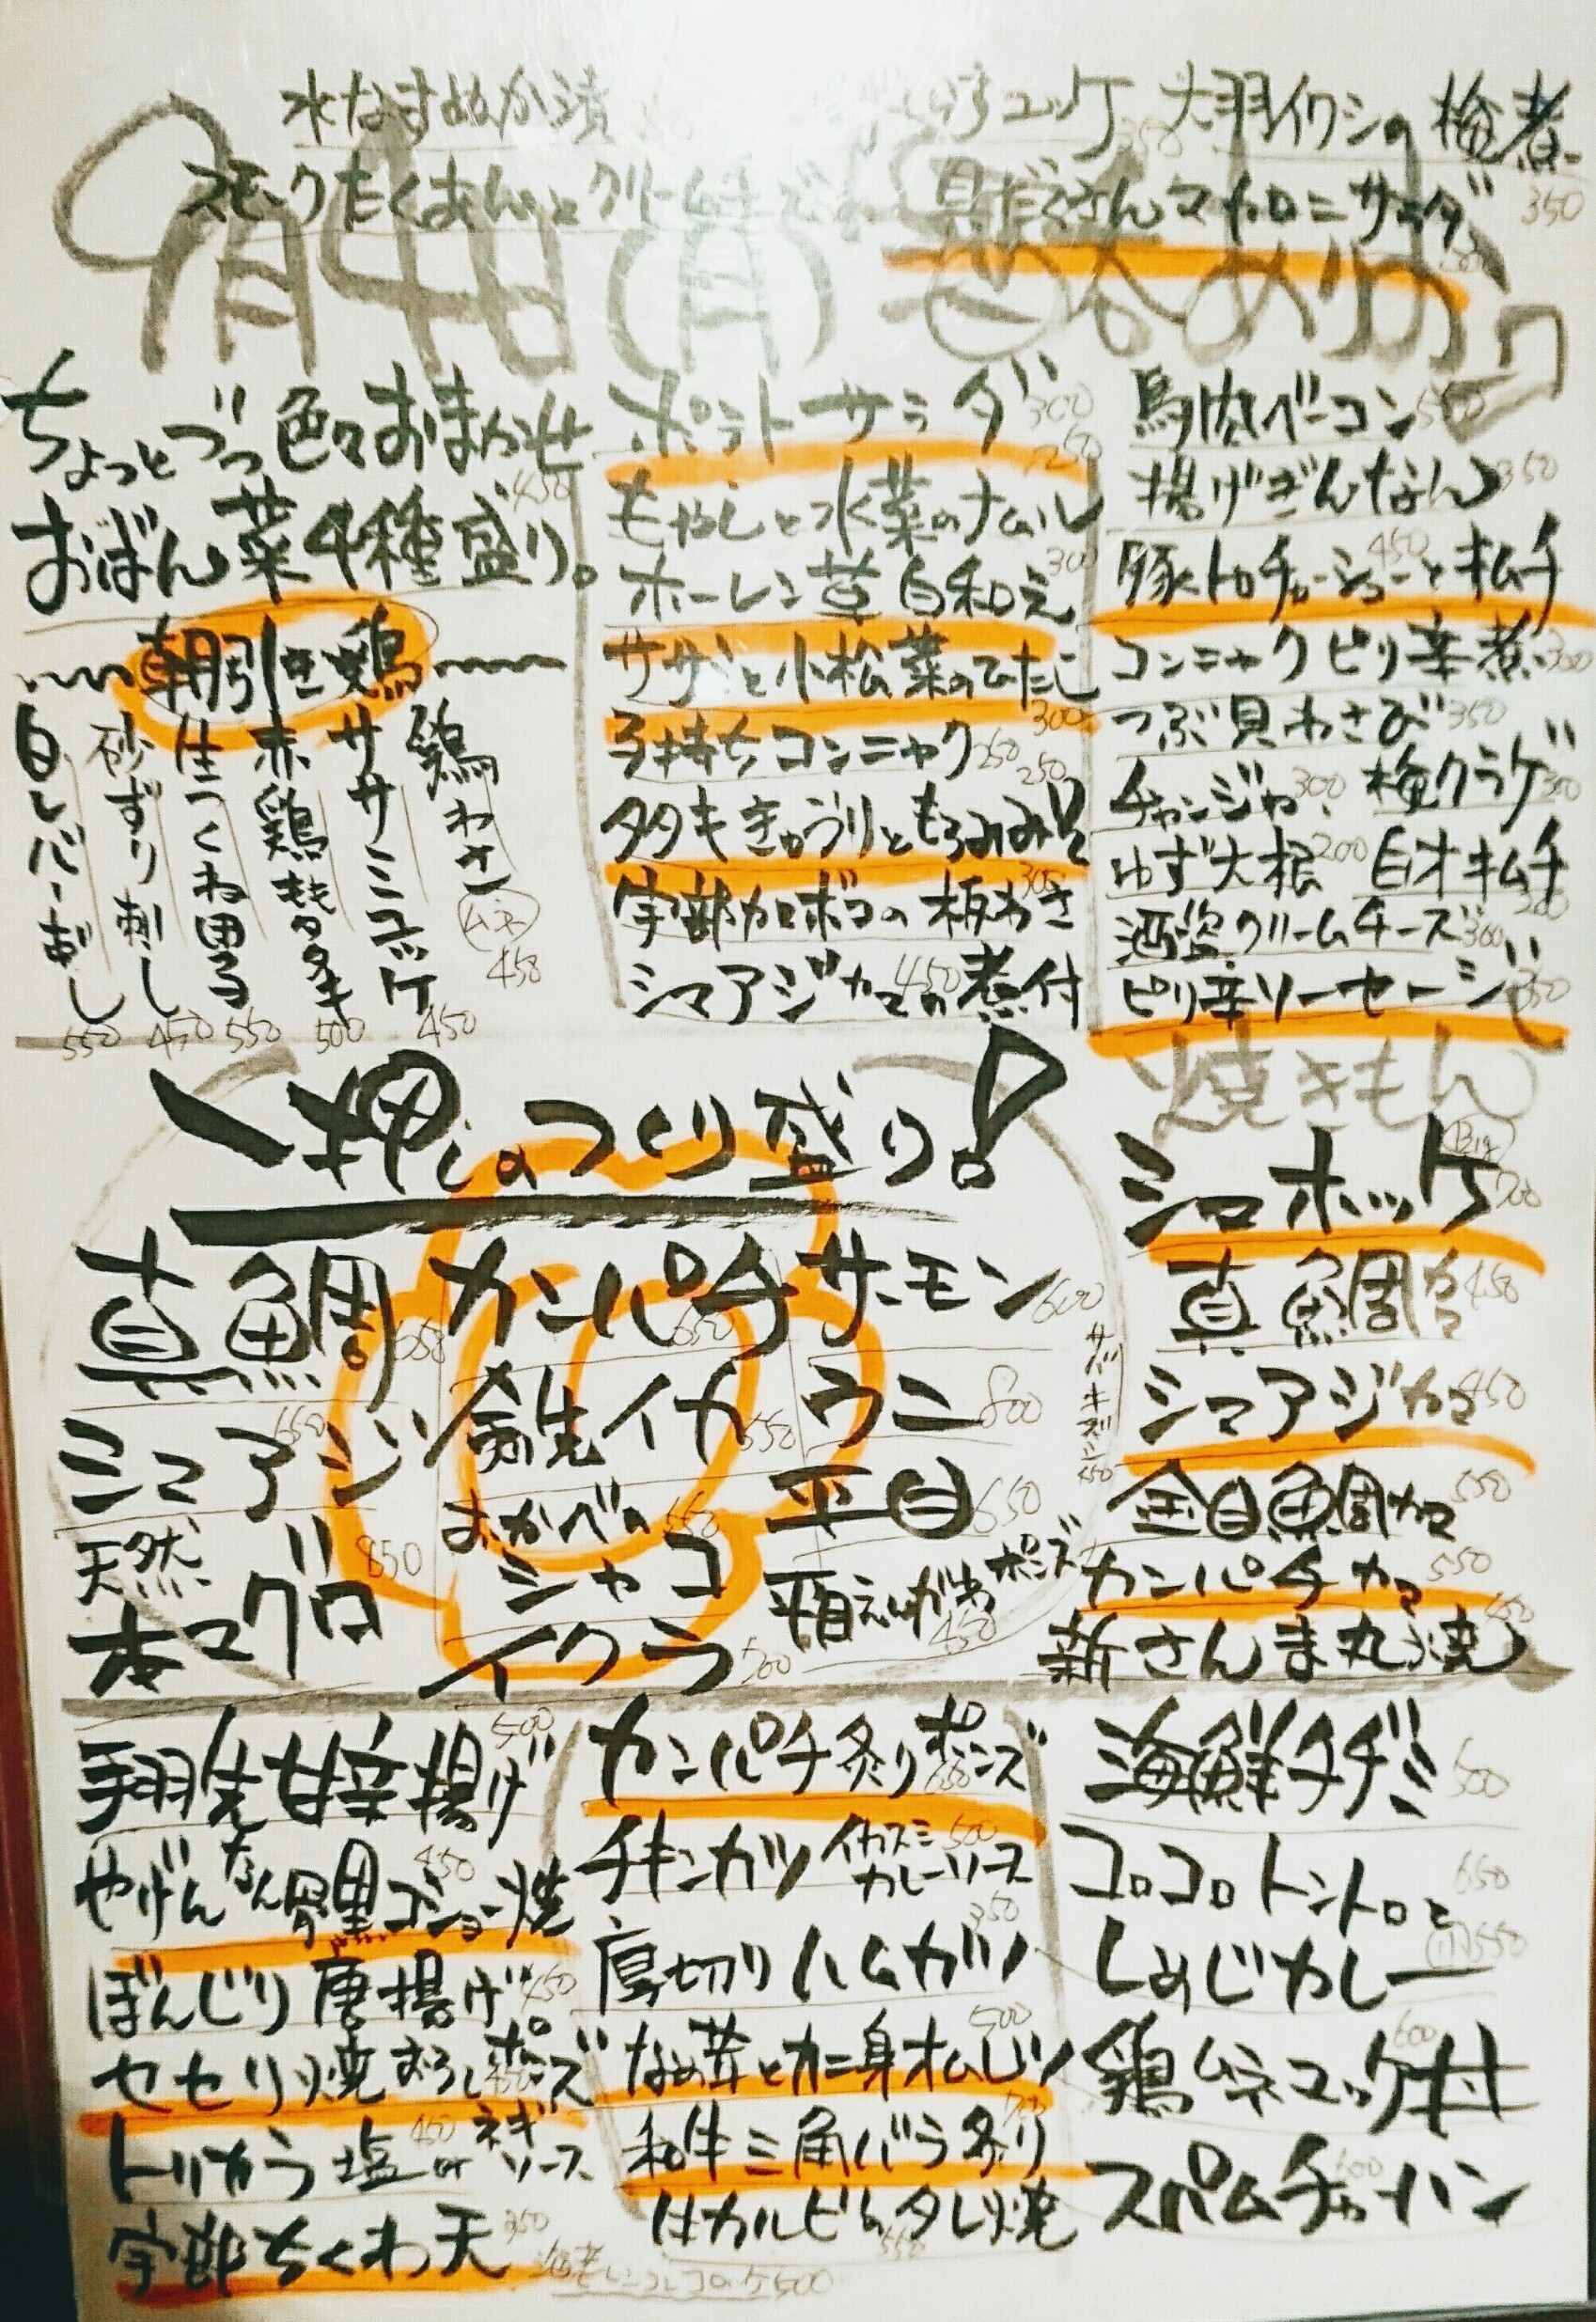 水なすぬか漬
ユッケ 350
大羽イワシの梅煮 350
スモークたくあんとクリームチーズ
具だくさんマカロニサラダ
9月4日(月)
ちょっとづつ色々おまかせ
おばん菜4種盛り。 450
朝引き鶏
鶏わさ (ムネ) 450
ササミユッケ 450
赤鶏たたき 500
生つくね 550
砂ずり刺し 450
白レバー刺し 550
ポテトサラダ 300
もやしと水菜のナムル 250
ホーレン草白和え 300
サザエと小松菜のひたし 300
子持ちコンニャク 250
タタキきゅうりともろみみそ 250
宇部カマボコの板わさ 300
シマアジカマの煮付 450
馬肉ベーコン 550
揚げぎんなん 350
豚トロチャーシューとキムチ 450
コンニャクピリ辛煮 300
つぶ貝わさび 350
チャンジャ 300 梅クラゲ 300
ゆず大根 200 白才キムチ
酒盗クリームチーズ 300
ピリ辛ソーセージ 350
一押しのつくり盛り!
真鯛 650
カンパチ 650
サーモン 600
シマアジ 650
剣先イカ 550
ウニ 800
天然
本マグロ 850
おかべの
シャコ 550
イクラ 500
平目 650
平目えんがわポンズ 450
サバキズシ 450
焼きもん
シマホッケ (Big) 700
真鯛カマ 450
シマアジカマ 450
金目鯛カマ 550
カンパチカマ 550
新さんま丸焼 450
手羽先甘辛揚げ 500
やげんなんこつ黒コショー焼 450
ぼんじり唐揚げ 450
セセリ焼おろしポンズ
トリカラ塩orネギソース 450
宇部ちくわ天 350
カンパチ炙りポンズ
チキンカツ イカスミカレーソース 500
厚切りハムカツ 350
なめ茸とカニ身オムレツ 500
和牛三角バラ炙り
〃カルビタレ焼 550
海鮮チヂミ 500
コロコロトントロと
しめじカレー 650
(小)550
鶏ムネユッケ丼 600
スパムチャーハン 600